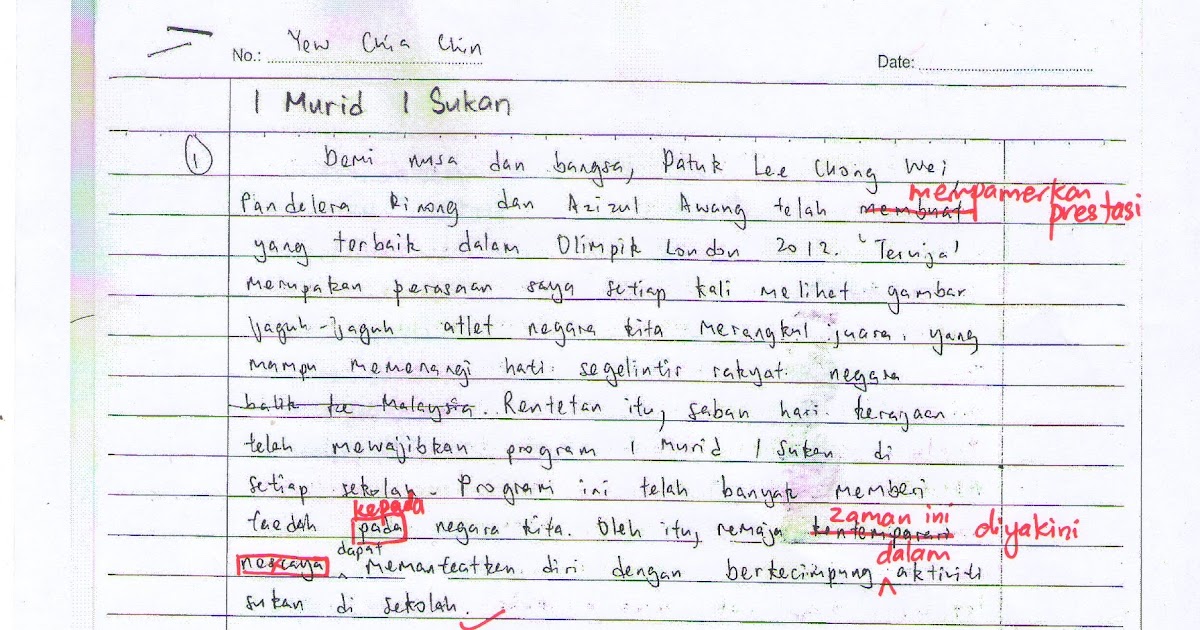 No.: Yew Chia Chin
Date:
1 Murid 1 Sukan
1 Demi nusa dan bangsa, Datuk Lee Chong Wei,
mempamerkan
Pandelera Rinong dan Azizul Awang telah membuat prestasi
yang terbaik dalam Olimpik London 2012. 'Teruja'
merupakan perasaan saya setiap kali melihet gambar
jaguh-jaguh atlet negara kita merangkul juara, yang
mampu memenangi hati segelintir rakyat negara
balik ke Malaysia. Rentetan itu, saban hari kerajaan
telah mewajibkan program 1 Murid 1 Sukan di
setiap sekolah. Program ini telah banyak memberi
kepada zaman ini
faedah pada negara kita. Oleh itu, remaja kontemporari diyakini
dapat dalam
nescaya memanfaatken diri dengan berkecimpung aktiviti
sukan di sekolah.